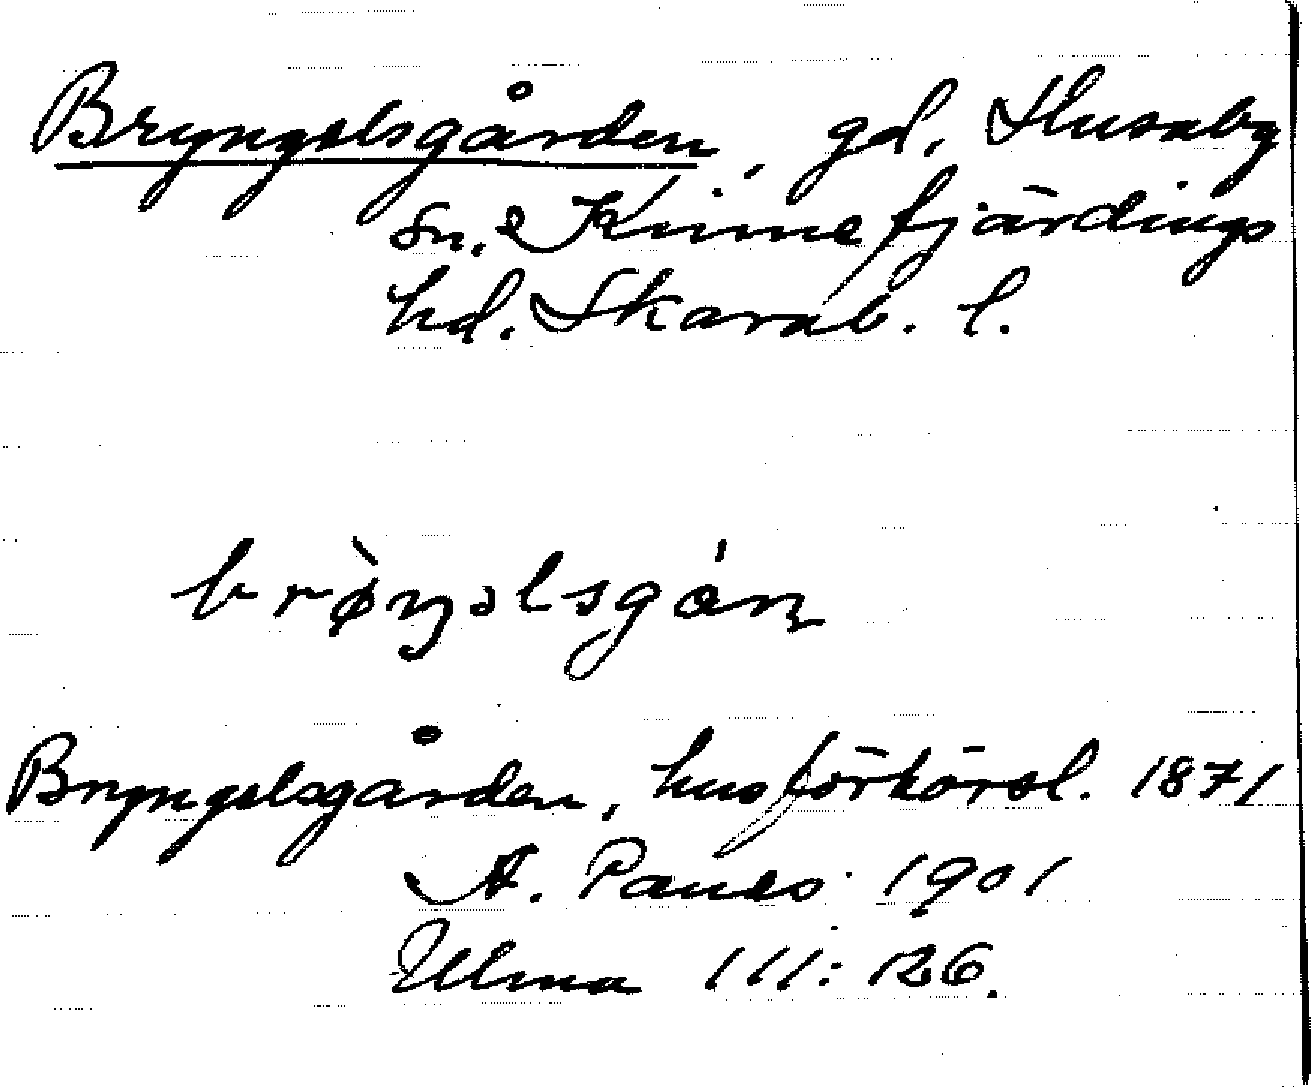 Bryngelsgården, gd, Husaby
sn. Kinnefjärdings
hd. Skarab. l.
brø̀ŋəlsgán
Bryngelsgården, husförhörsl. 1871
A. Panes 1901
Ulma 111:126.